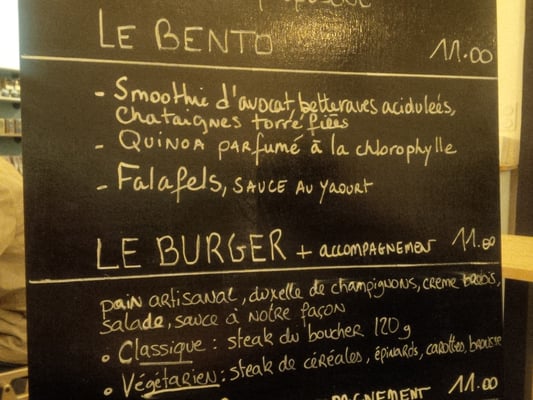 LE BENTO 11.00
- Smoothie d'avocat, betteraves aciduleés,
Chataignes torréfiées
- Quinoa parfumé à la chlorophylle
- Falafels, sauce au yaourt
LE BURGER + accompagnement 11.00
pain artisanal, duxelle de champignons, creme brebis,
salade, sauce à notre façon
• Classique : steak du boucher 120g
• Végétarien : steak de céréales, épinards, carottes, brousse
11.00